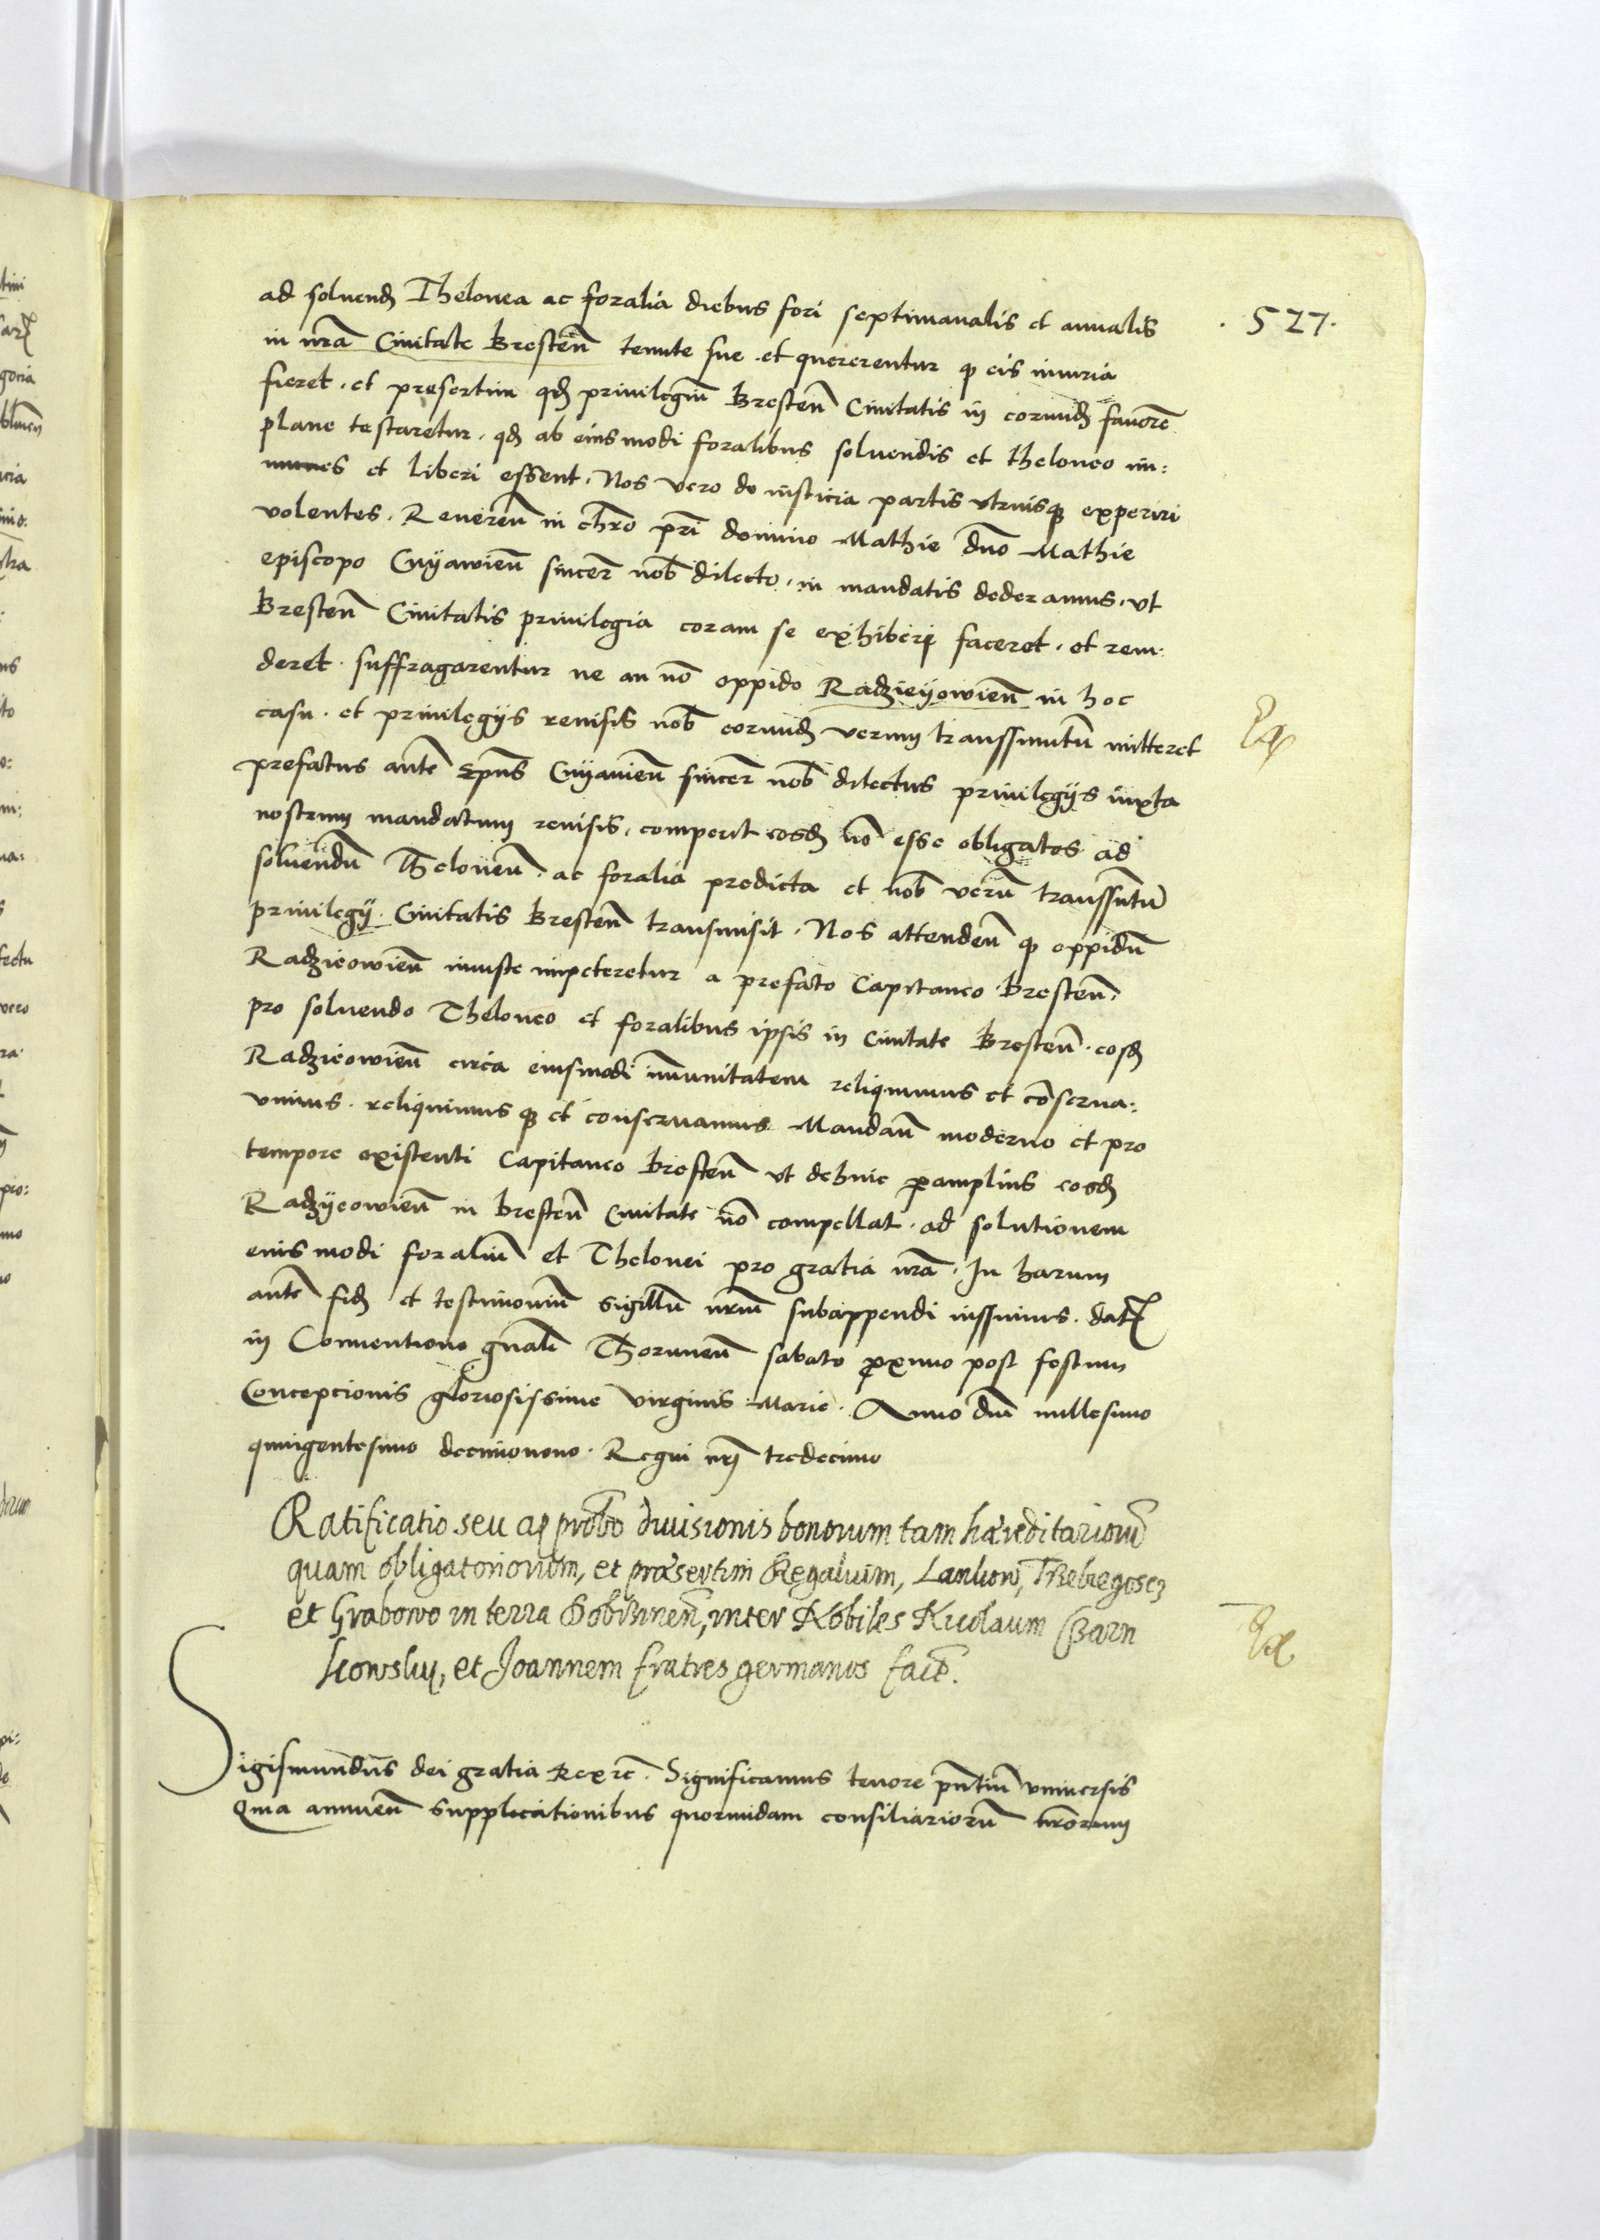 ad soluend Thelonea ac foralia diebus fori septimanalis et annalis
· 527 ·
in nrã Ciuitate Bresteñ tenute sue · et quererentur q eis iniuria
fieret · et presertim qd priuilegiũ Bresteñ Ciuitatis in eorund fauorẽ
plane testaretur · qd ab eiusmodi foralibus soluendis et theloneo im:
munes et liberi essent · Nos vero de iusticia partis vtriusq experiri
volentes · Reuereñ in chro pri domino Mathie dño Mathie
episcopo Cuyawieñ sincer nob dilecto · in mandatis dederamus · vt
Bresteñ Ciuitatis priuilegia coram se exhiberi faceret · et rem
deret · suffragarentur ne an nõ oppido Radzieyowieñ in hoc
casu · et priuilegijs reuisis nob eorund verum transsumtũ mitteret
prefatus autẽ epũs Cuyauieñ sincer nob dilectus priuilegijs iuxta
nostrum mandatum reuisis · comperit eosd nõ esse obligatos ad
soluendũ Theloneũ · ac foralia predicta et nob verũ transsũtũ
priuilegij · Ciuitatis Bresteñ transmisit · Nos attendeñ q oppidũ
Radzieowieñ iniuste impeteretur a prefato Capitaneo Bresteñ ·
pro soluendo Theloneo et foralibus ipsis in Ciuitate Bresteñ · eosd
Radzieowieñ circa eiusmodi imunitatem reliquimus et cõserua:
uimus · reliquimus q et conseruamus Mandañ moderno et pro
tempore existenti Capitaneo Bresteñ vt dehinc pamplius eosd
Radzyeowieñ in Bresteñ Ciuitate nõ compellat · ad solutionem
eiusmodi foraliũ et Thelonei pro gratia nrã · In harum
autẽ fid et testimoniũ sigillũ nrũm subappendi iussimus · dat
in Conuentione gnali Thoruneñ sabato pximo post festum
Concepcionis gloriosissime virginis Marie · Anno dni millesimo
quingentesimo decimonono · Regni nrj tredecimo
Ratificatio seu approbõ diuisionis bonorum tam hæreditariorũ
quam obligatoriorum, et præsertim Regalium, Lankow, Trzebiegoscz
et Grabowo in terra Dobrzineñ, inter Nobiles Nicolaum Sbarn
kowsky, et Joannem fratres germanos fact.
Sigismundus dei gratia Rex rc̃ · Significamus tenore pñtiũ vniuersis
Quia annueñ supplicationibus quorundam consiliariorũ nrõrum